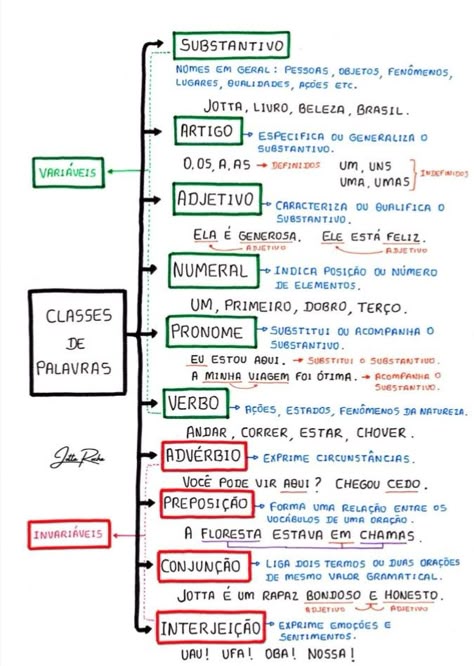 SUBSTANTIVO
NOMES EM GERAL: PESSOAS, OBJETOS, FENÔMENOS,
LUGARES, QUALIDADES, AÇÕES ETC.
JOTTA, LIVRO, BELEZA, BRASIL.
ARTIGO
ESPECIFICA OU GENERALIZA O
SUBSTANTIVO.
O, OS, A, AS → DEFINIDOS
UM, UNS
UMA, UMAS
INDEFINIDOS
VARIÁVEIS
ADJETIVO
CARACTERIZA OU QUALIFICA O
SUBSTANTIVO.
ELA É GENEROSA. ELE ESTÁ FELIZ.
ADJETIVO ADJETIVO
NUMERAL
INDICA POSIÇÃO OU NÚMERO
DE ELEMENTOS.
UM, PRIMEIRO, DOBRO, TERÇO.
CLASSES
DE
PALAVRAS
PRONOME
SUBSTITUI OU ACOMPANHA O
SUBSTANTIVO.
EU ESTOU AQUI. → SUBSTITUI O SUBSTANTIVO.
A MINHA VIAGEM FOI ÓTIMA. → ACOMPANHA O
SUBSTANTIVO.
VERBO
AÇÕES, ESTADOS, FENÔMENOS DA NATUREZA.
ANDAR, CORRER, ESTAR, CHOVER.
ADVÉRBIO
EXPRIME CIRCUNSTÂNCIAS.
VOCÊ PODE VIR AQUI? CHEGOU CEDO.
PREPOSIÇÃO
FORMA UMA RELAÇÃO ENTRE OS
VOCÁBULOS DE UMA ORAÇÃO.
A FLORESTA ESTAVA EM CHAMAS.
INVARIÁVEIS
CONJUNÇÃO
LIGA DOIS TERMOS OU DUAS ORAÇÕES
DE MESMO VALOR GRAMATICAL.
JOTTA É UM RAPAZ BONDOSO E HONESTO.
ADJETIVO ADJETIVO
INTERJEIÇÃO
EXPRIME EMOÇÕES E
SENTIMENTOS.
UAU! UFA! OBA! NOSSA!